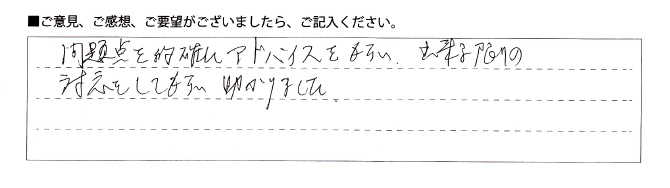 ■ご意見、ご感想、ご要望がございましたら、ご記入ください。
問題点を的確にアドバイスをもらい、出来る限りの
対応をしてもらい助かりました。